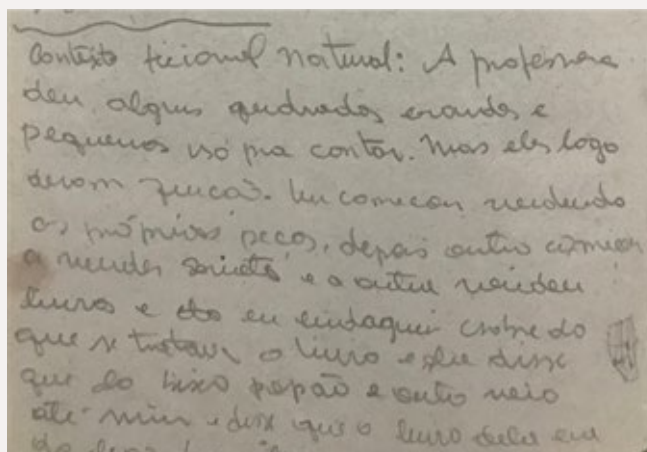 Contexto ficcional natural: A professora
deu alguns quadrados grandes e
pequenos só pra contar. Mas eles logo
deram função. Um começou vendendo
as próprias peças, depois outro começou
a vender sorvete e a outra vendeu
livros e eu indaguei sobre do
que se tratava o livro e ele disse
que do bixo papão e outro veio
até mim e disse que o livro dele era